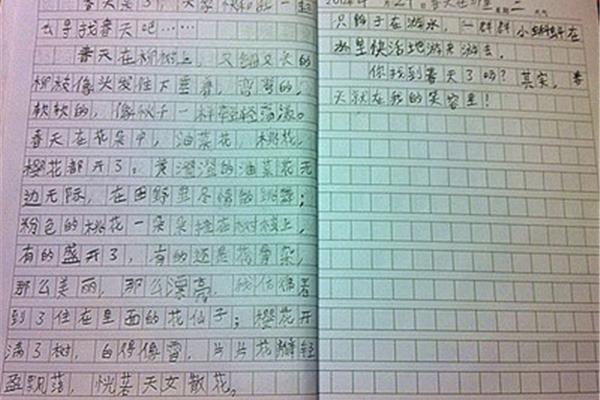 春天来了,大家
去寻找春天吧……
春天在柳树上,又细又长的
柳枝像头发往下垂着,弯弯的,
软软的,像秋千一样轻轻荡漾。
春天在花朵中,油菜花,桃花,
樱花都开了。黄澄澄的油菜花无
边无际,在田野里尽情的跳舞;
粉色的桃花一朵朵挂在树枝上,
有的盛开了,有的还是花骨朵,
那么美丽,那么漂亮,我仿佛看
到了住在里面的花仙子;樱花开
满了树,白得像雪,片片花瓣轻
盈飘落,恍若天女散花。
春天在哪里 星期二 天气
只鸭子在游水,一群群小蝌蚪在
水里快活地游来游去。
你找到春天了吗?其实,春
天就在我的笑容里!